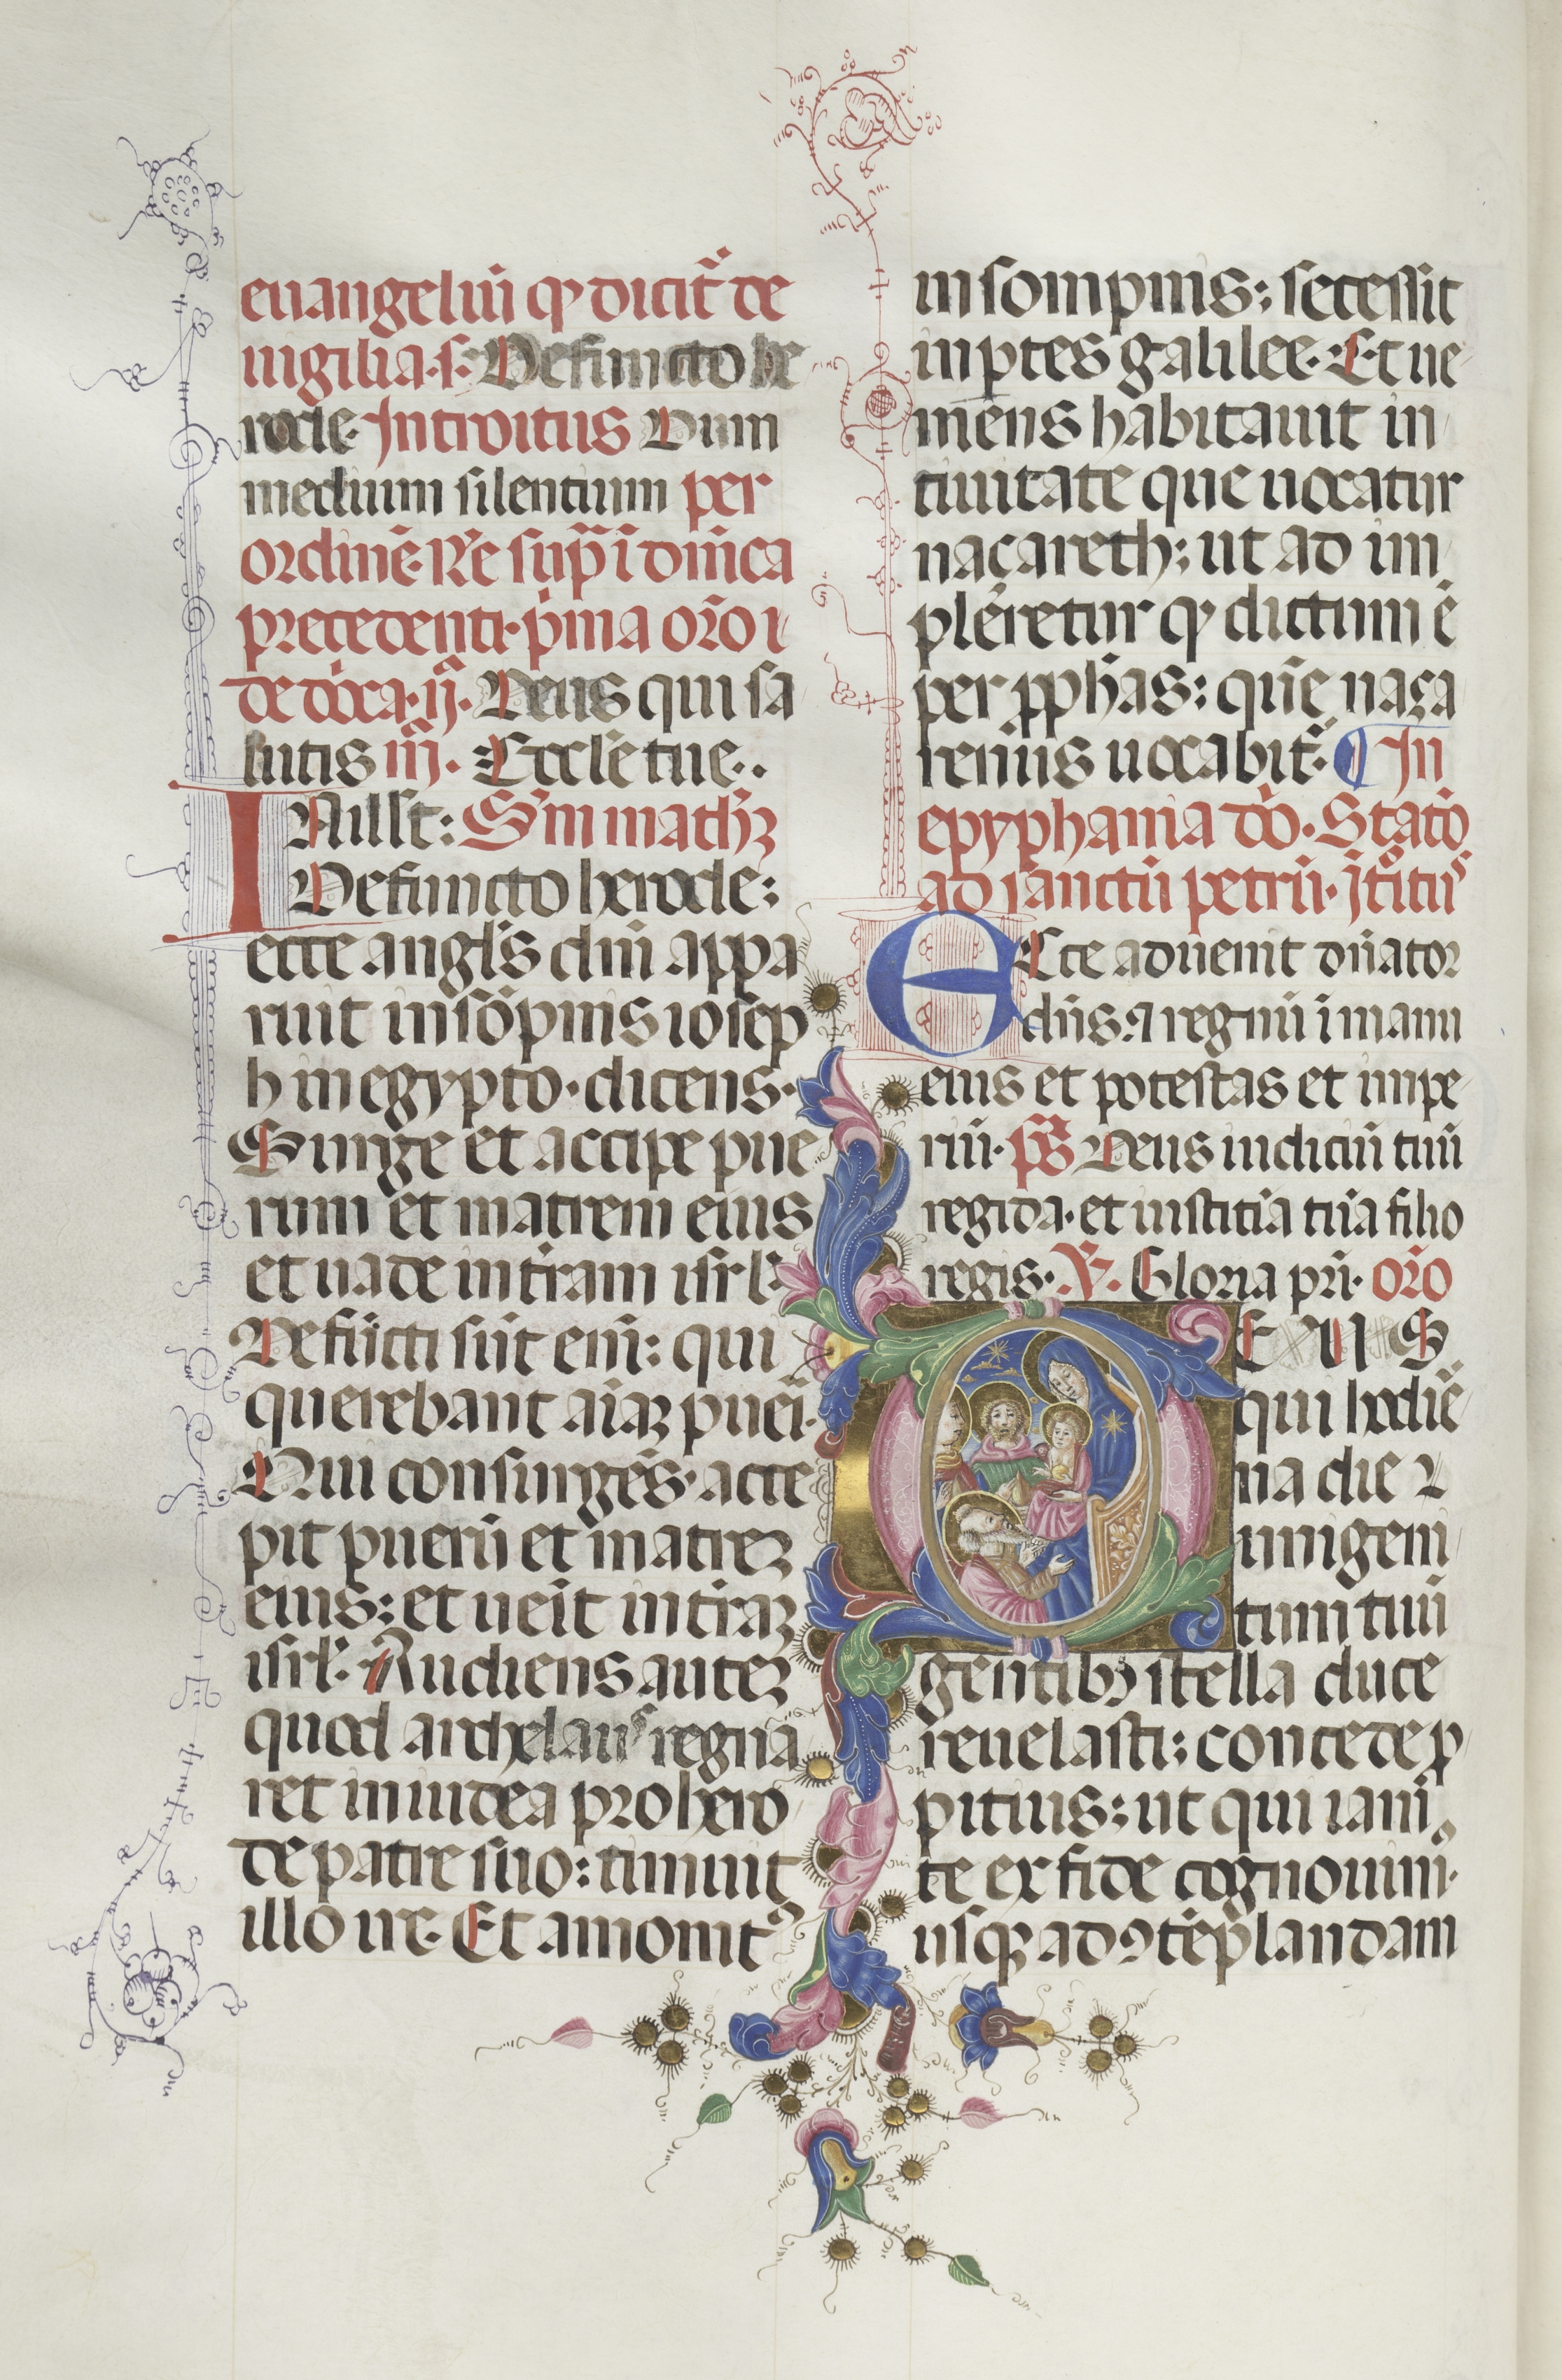 euangeliū qꝫ dicit᷑ de
uigilia. s. Defuncto he
rode. Introitus Dum
medium silentium per
ordinē. Rē sup̄ ī dn̄ica
precedenti. p̄ma or̄o ı
de dōca. ij. Deus qui sa
lutis iij. Eccl̄e tue..
INill̄t: Sm̄ math̄ꝫ
Defuncto herode:
ecce angl̄s dn̄i appa
ruit in sōpnis iosep
h in egypto. dicens.
Surge et accipe pue
rum et matrem eius
et uade in tr̄am isrl̄.
Defūcti sūt eni᷑: qui
querebant aiaꝫ pueri.
Qui consurgēs. acce
pit puerū et matreꝫ
eius: et ueīt in tr̄aꝫ
isrl̄. Audiens auteꝫ
quod archelaus regna
ret in iudea pro hero
de patre suo: timuit
illo ire. Et amonitꝰ
in sompnis: secessit
in ꝑtes galilee. Et ue
niens habitauit in
ciuitate que uocatur
naçareth: ut ad im
pleretur qꝫ dictum ē
per ꝓphās: qn̄e naça
renus uocabit᷑. ¶ In
epyphania dō. Statō
ad sanctū petrū. Itᵒitꝰ
ECce aduenit dn̄ator
dn̄s: ⁊ regnū ī manu
eius et potestas et impe
riū. pˢ Deus iudiciū tuū
regi da. et iusticiā tuā filio
regis. V. Gloria pr̄i. or̄o
DEUS
qui hodiē
na die
unigeni
tum tuū
gentibꝫ stella duce
reuelasti: concede ꝓ
pitius: ut qui iam
te ex fide cognouim̄.
usqꝫ ad ꝯtēplandam